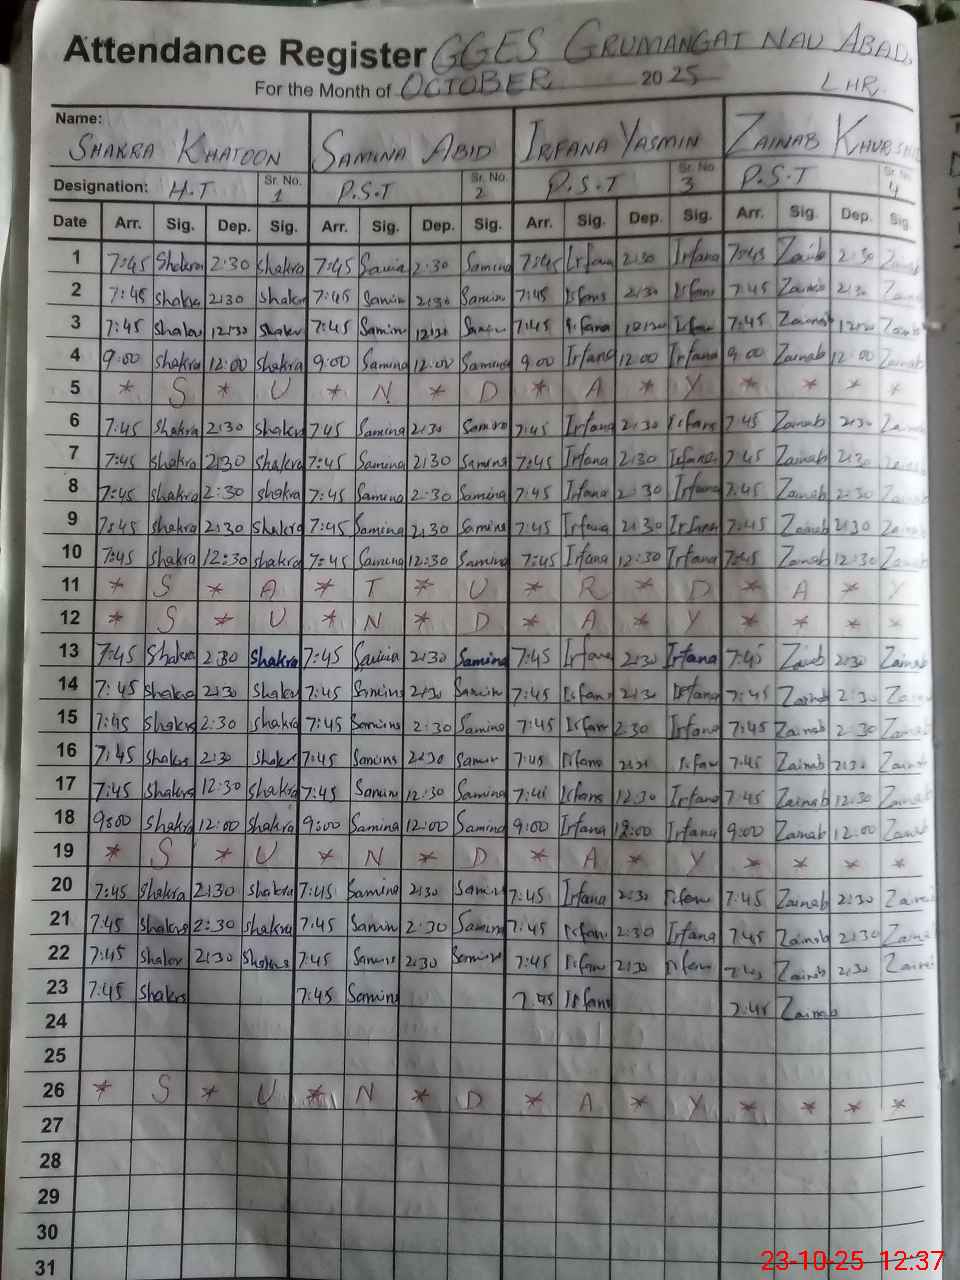 Attendance Register GGES GRUMANGAT NAU ABAD,
For the Month of OCTOBER 2025 LHR.
Name:
SHAKRA KHATOON SAMINA ABID IRFANA YASMIN ZAINAB KHURSHID
Designation: H.T Sr. No. 1 P.S.T Sr. No. 2 P.S.T Sr. No. 3 P.S.T Sr. No. 4
Date Arr. Sig. Dep. Sig. Arr. Sig. Dep. Sig. Arr. Sig. Dep. Sig. Arr. Sig. Dep. Sig.
1 7:45 Shakra 2:30 Shakra 7:45 Samina 2:30 Samina 7:45 Irfana 2:30 Irfana 7:45 Zainab 2:30 Zainab
2 7:45 Shakra 2:30 Shakra 7:45 Samina 2:30 Samina 7:45 Irfana 2:30 Irfana 7:45 Zainab 2:30 Zainab
3 7:45 Shakra 12:30 Shakra 7:45 Samina 12:30 Samina 7:45 Irfana 12:30 Irfana 7:45 Zainab 12:30 Zainab
4 9:00 Shakra 12:00 Shakra 9:00 Samina 12:00 Samina 9:00 Irfana 12:00 Irfana 9:00 Zainab 12:00 Zainab
5 * S * U * N * D * A * Y * * * *
6 7:45 Shakra 2:30 Shakra 7:45 Samina 2:30 Samina 7:45 Irfana 2:30 Irfana 7:45 Zainab 2:30 Zainab
7 7:45 Shakra 2:30 Shakra 7:45 Samina 2:30 Samina 7:45 Irfana 2:30 Irfana 7:45 Zainab 2:30 Zainab
8 7:45 Shakra 2:30 Shakra 7:45 Samina 2:30 Samina 7:45 Irfana 2:30 Irfana 7:45 Zainab 2:30 Zainab
9 7:45 Shakra 2:30 Shakra 7:45 Samina 2:30 Samina 7:45 Irfana 2:30 Irfana 7:45 Zainab 2:30 Zainab
10 7:45 Shakra 12:30 Shakra 7:45 Samina 12:30 Samina 7:45 Irfana 12:30 Irfana 7:45 Zainab 12:30 Zainab
11 * S * A * T * U * R * D * A * Y
12 * S * U * N * D * A * Y * * * *
13 7:45 Shakra 2:30 Shakra 7:45 Samina 2:30 Samina 7:45 Irfana 2:30 Irfana 7:45 Zainab 2:30 Zainab
14 7:45 Shakra 2:30 Shakra 7:45 Samina 2:30 Samina 7:45 Irfana 2:30 Irfana 7:45 Zainab 2:30 Zainab
15 7:45 Shakra 2:30 Shakra 7:45 Samina 2:30 Samina 7:45 Irfana 2:30 Irfana 7:45 Zainab 2:30 Zainab
16 7:45 Shakra 2:30 Shakra 7:45 Samina 2:30 Samina 7:45 Irfana 2:30 Irfana 7:45 Zainab 2:30 Zainab
17 7:45 Shakra 12:30 Shakra 7:45 Samina 12:30 Samina 7:45 Irfana 12:30 Irfana 7:45 Zainab 12:30 Zainab
18 9:00 Shakra 12:00 Shakra 9:00 Samina 12:00 Samina 9:00 Irfana 12:00 Irfana 9:00 Zainab 12:00 Zainab
19 * S * U * N * D * A * Y * * * *
20 7:45 Shakra 2:30 Shakra 7:45 Samina 2:30 Samina 7:45 Irfana 2:30 Irfana 7:45 Zainab 2:30 Zainab
21 7:45 Shakra 2:30 Shakra 7:45 Samina 2:30 Samina 7:45 Irfana 2:30 Irfana 7:45 Zainab 2:30 Zainab
22 7:45 Shakra 2:30 Shakra 7:45 Samina 2:30 Samina 7:45 Irfana 2:30 Irfana 7:45 Zainab 2:30 Zainab
23 7:45 Shakra 7:45 Samina 7:45 Irfana 7:45 Zainab
24
25
26 * S * U * N * D * A * Y * * * *
27
28
29
30
31
23-10-25 12:37